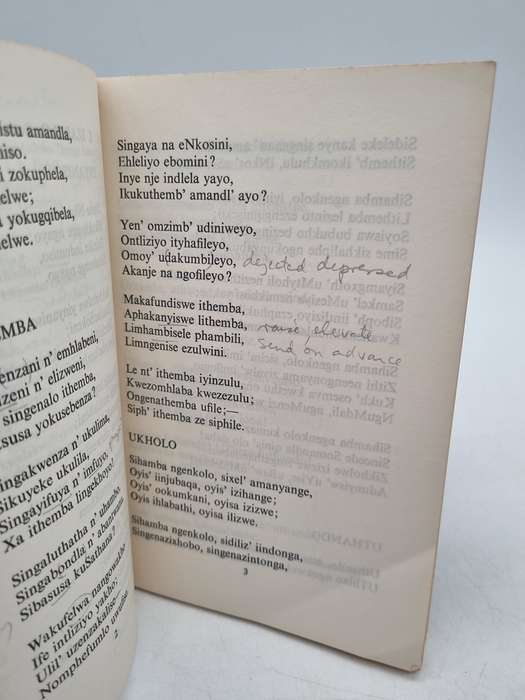 istu amandla,
niso.
i zokuphela,
elwe;
i yokugqibela,
nelwe.
EMBA
enzani n' emhlabeni,
izeni n' elizweni,
singenalo ithemba,
susa yokusebenza?
ingakwenza n' ukulima,
Sikuyeke ukulila,
Singayifuya n' imfuyo,
Xa ithemba lingekhoyo?
Singaluthatha n' uhambo,
Singabondla, n' abantwana
Sibasusa kuSathana?
Wakufelwa nangowakho
Ife intliziyo yakho;
Ulil' uzenzakalise
Nomphefumlo
2
Singaya na eNkosini,
Ehleliyo ebomini?
Inye nje indlela yayo,
Ikukuthemb' amandl' ayo?
Yen' omzimb' udiniweyo,
Ontliziyo ityhafileyo,
Omoy' udakumbileyo, dejected depressed
Akanje na ngofileyo?
Makafundiswe ithemba,
Aphakanyiswe lithemba, raise, elevate
Limhambisele phambili, send on advance
Limngenise ezulwini.
Le nt' ithemba iyinzulu,
Kwezomhlaba kwezezulu;
Ongenathemba ufile;—
Siph' ithemba ze siphile.
UKHOLO
Sihamba ngenkolo, sixel' amanyange,
Oyis' iinjubaqa, oyis' izihange;
Oyis' ookumkani, oyisa izizwe;
Oyis ihlabathi, oyisa ilizwe.
Sihamba ngenkolo, sidiliz' iindonga,
Singenazishobo, singenazintonga,
3